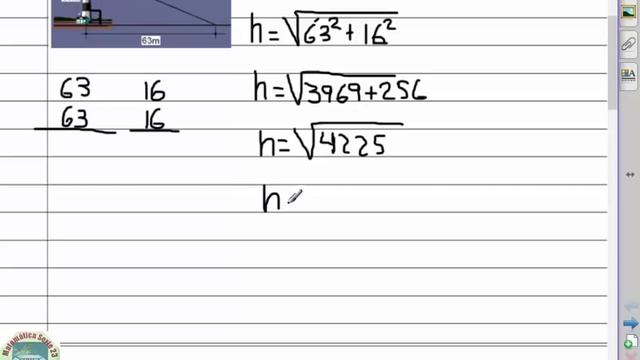 63m
h = √63² + 16²
63 16
63 16
h = √3969 + 256
h = √4225
h
Matemática Sofía 23